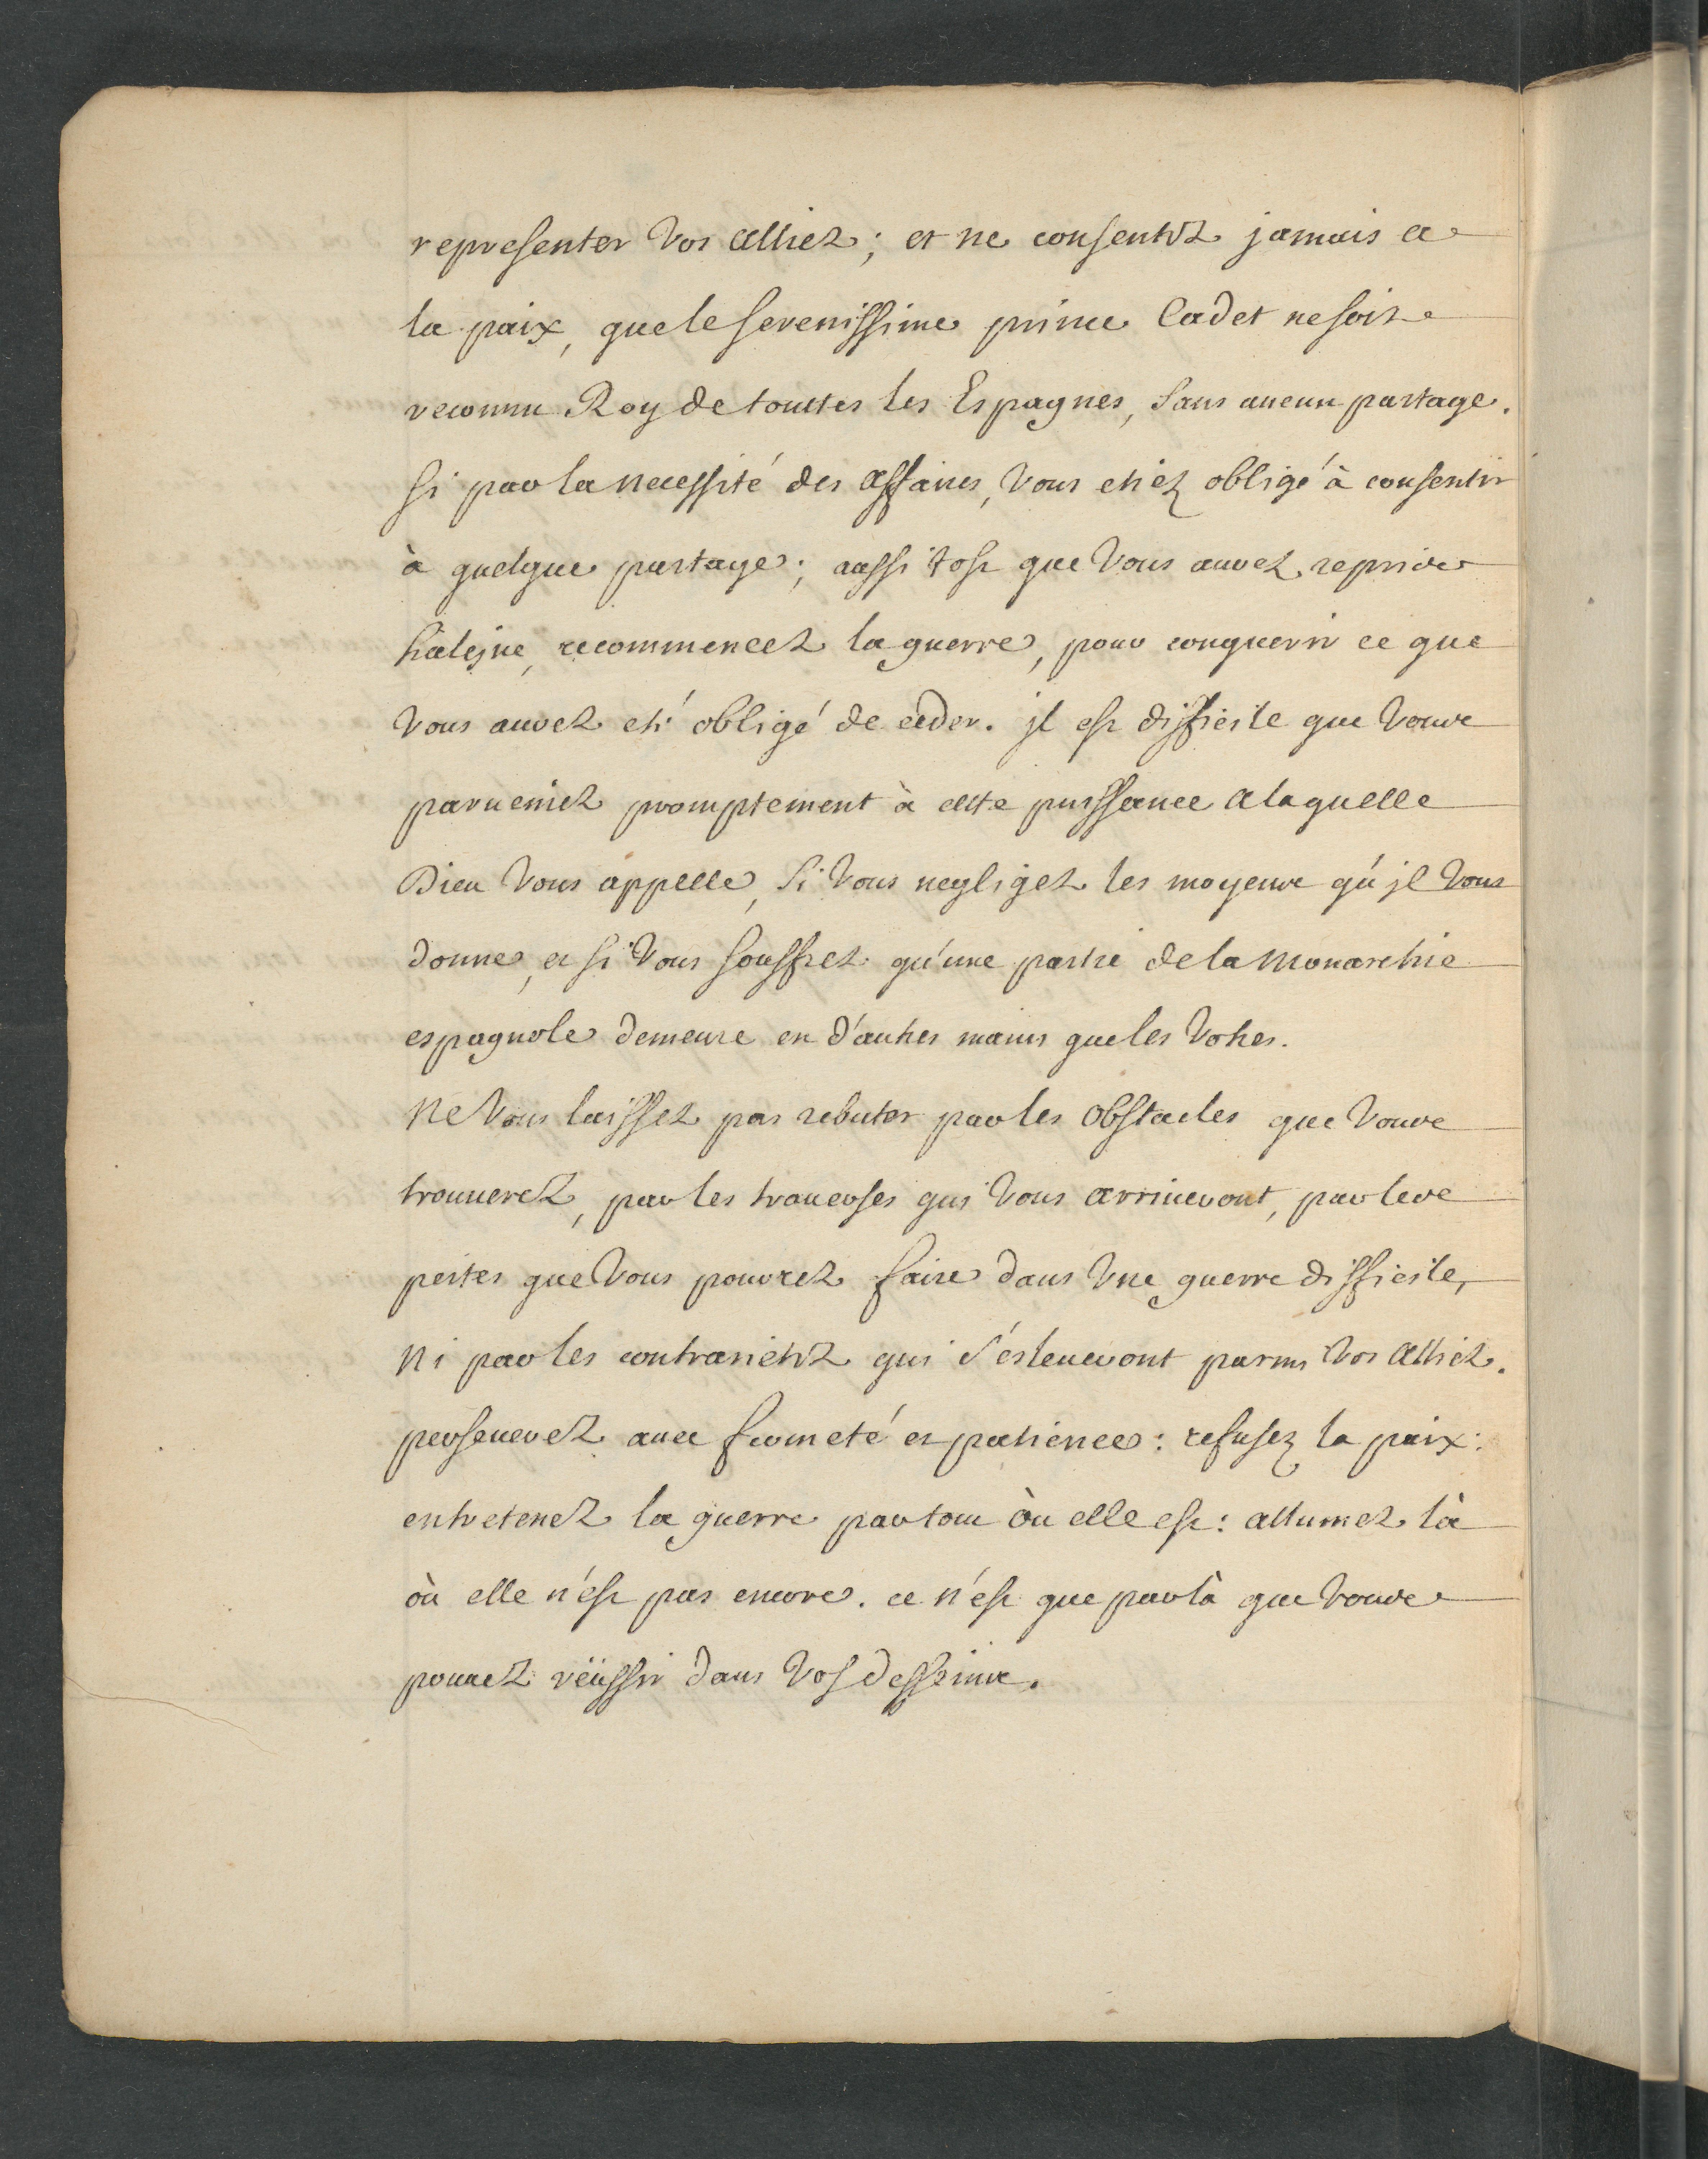 representer Vos alliez; et ne consentez jamais a
la paix, que le serenissime prince Cadet ne soit
reconnu Roy de touttes les Espagnes, sans aucun partage.
si par la necessité des affaires, Vous etiez obligé à consentir
à quelque partage; aussi tost que Vous aurez repris
haleine, recommencez la guerre, pour conquerir ce que
Vous aurez eté obligé de ceder. jl est difficile que Vous
parueniez promptement à cette puissance a laquelle
Dieu Vous appelle, si Vous negligez les moyens qu'jl Vous
donne, et si Vous souffrez qu'une partie de la Monarchie
espagnole demeure en d'autres mains que les Votres.
Ne Vous laissez pas rebuter par les obstacles que Vous
trouuerez, par les trauerses qui Vous arriueront, par les
pertes que Vous pourrez faire dans Vne guerre difficile,
Ni par les contrarietez qui s'esleueront parmi Vos alliez.
perseuerez auec fermeté et patience: refusez la paix:
entretenez la guerre par tout où elle est: allumez là
où elle n'est pas encore. ce n'est que par là que Vous
pourrez réüssir dans Vos desseins.